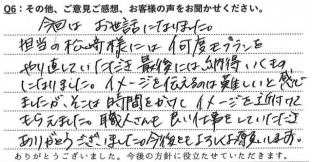 Q6:その他、ご意見ご感想、お客様の声をお聞かせください。
今回は お世話になりました。
担当の松崎様には何度もプランを
やり直していただき最後には納得いくもの
になりました。イメージを伝えるのは難しいと感じ
ましたが、そこは時間をかけてイメージを近付けて
もらえました。職人さんも良い仕事をしていただき
ありがとうございました。今後ともよろしくお願いします。
ありがとうございました。今後の方針に役立たせていただきます。